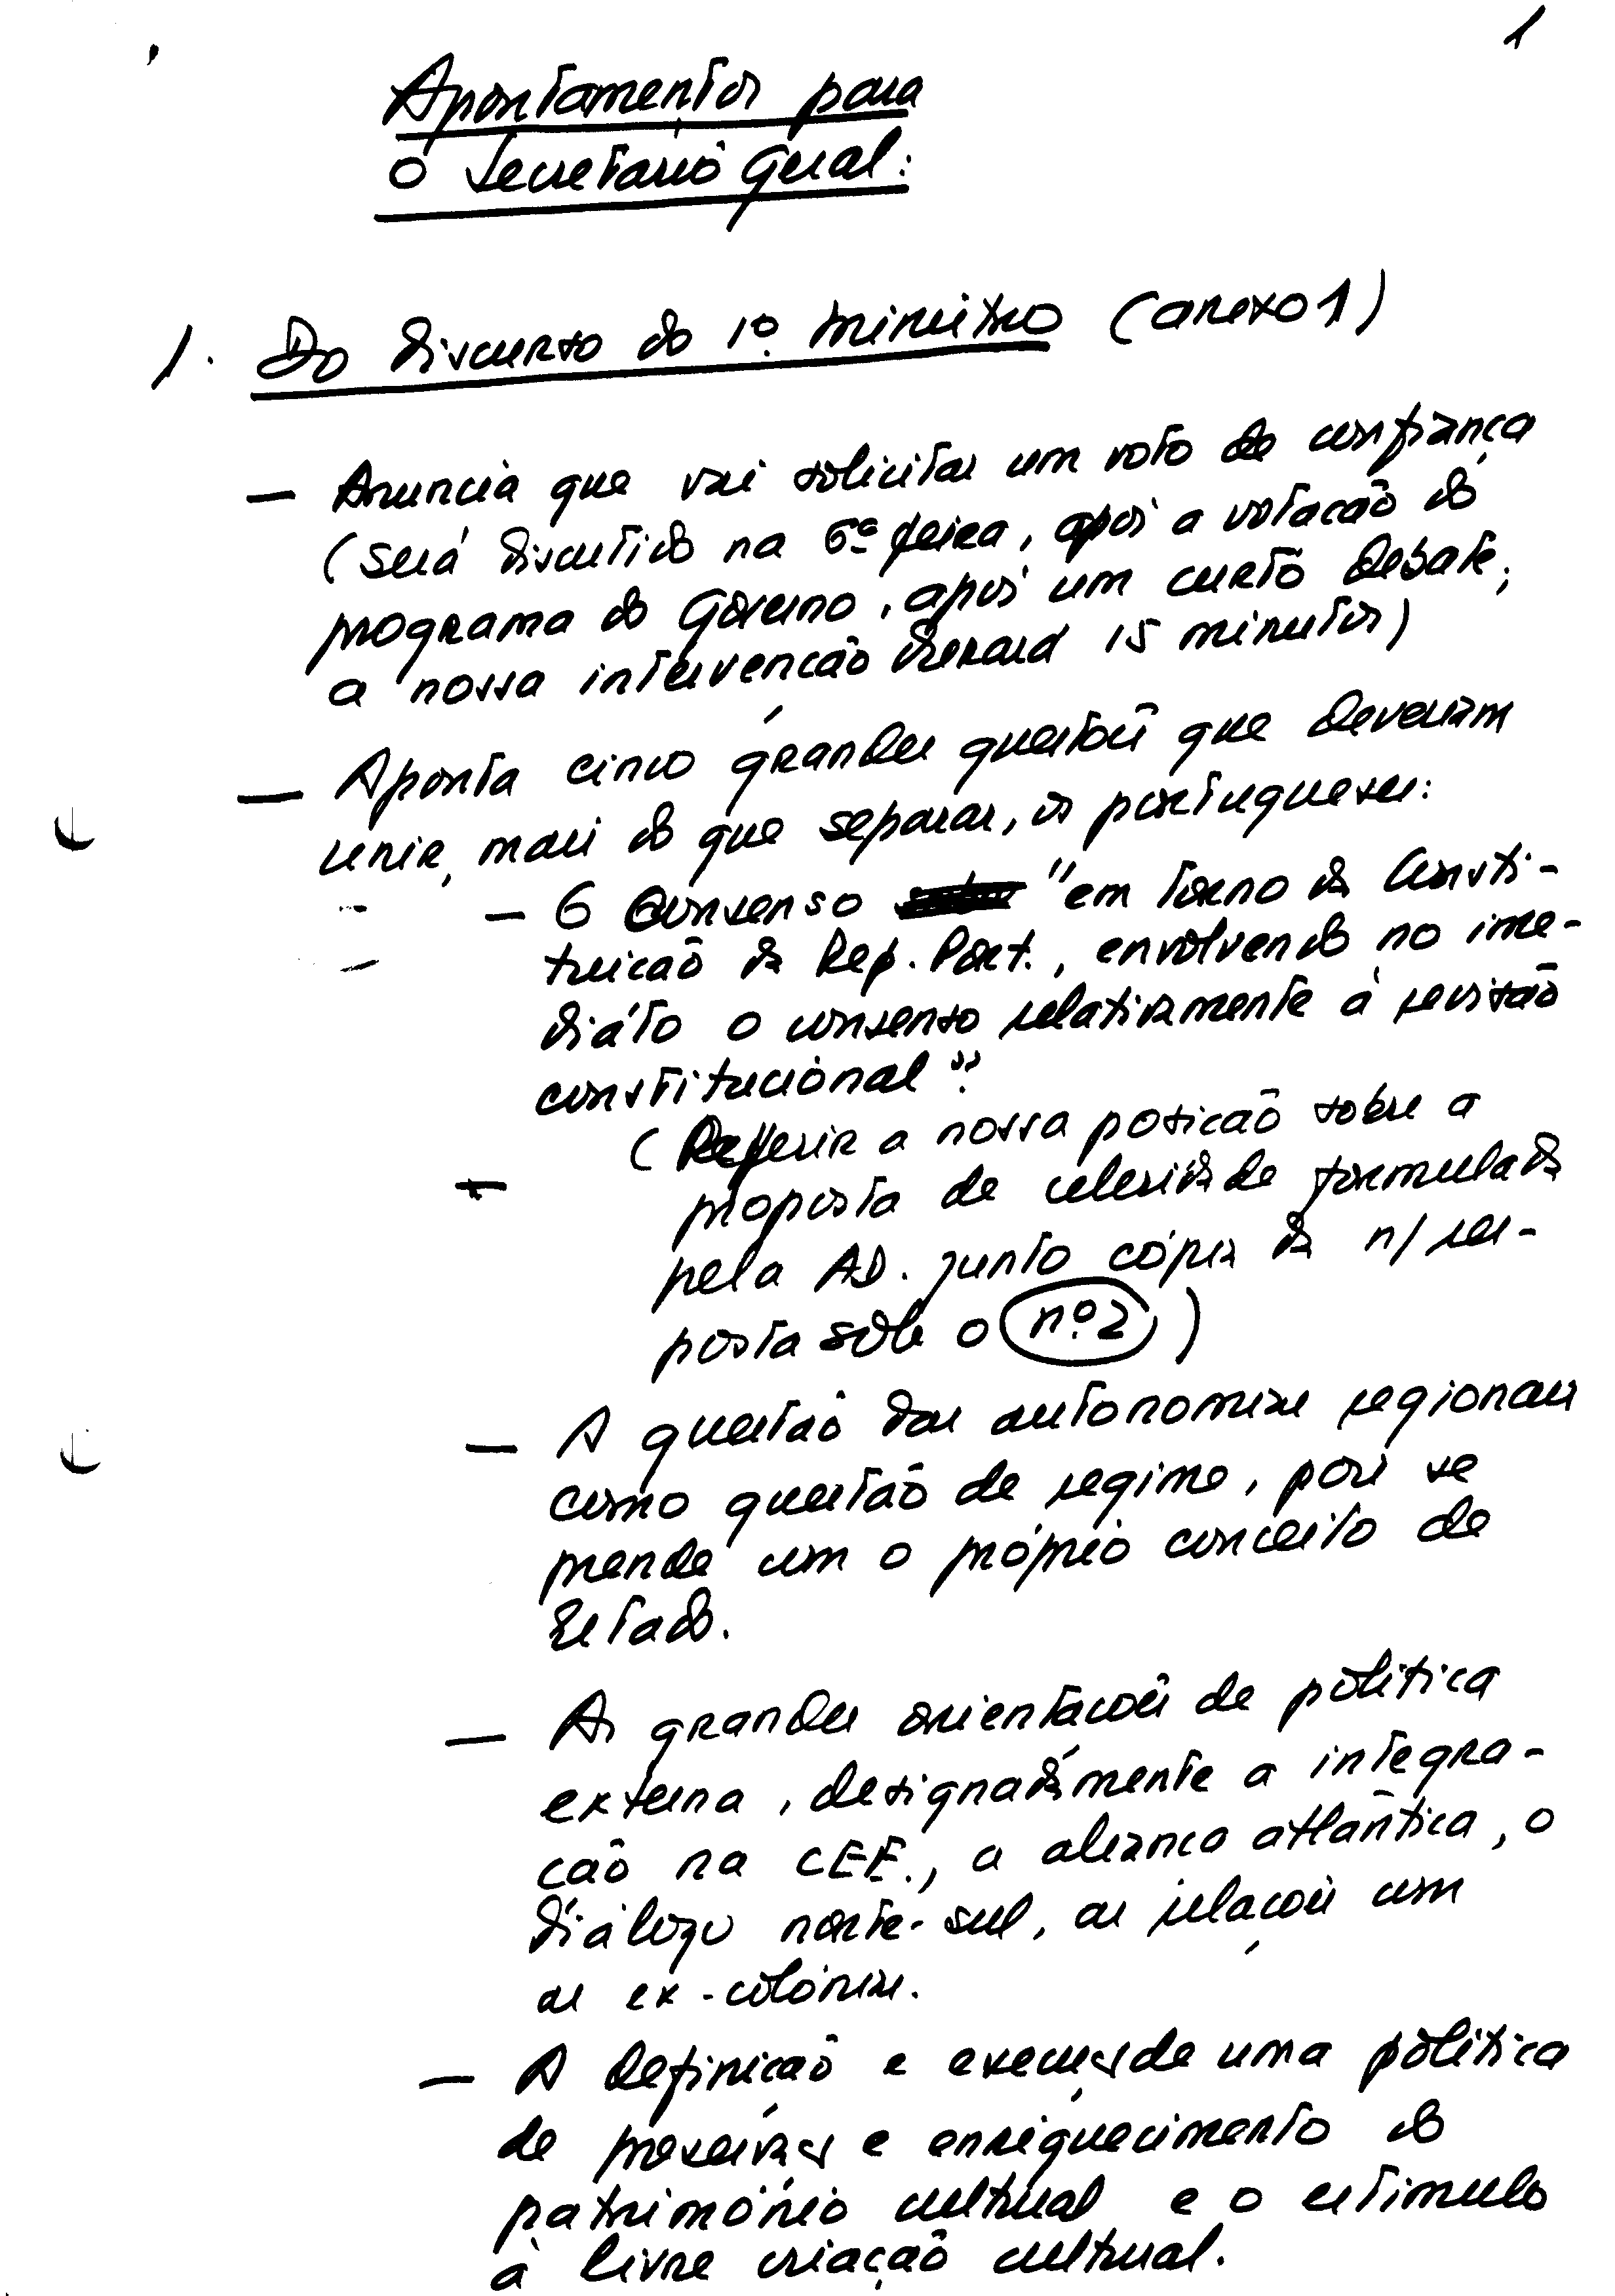 1
Apontamentos para
o Secretario Geral:
1. Do discurso do 1º ministro (anexo 1)
— Anuncia que vai solicitar um voto de confiança
(será discutido na 6ª feira, após a votação do
programa do Governo, após um curto debate;
a nossa intervenção 15 minutos)
— Aponta cinco grandes questões que deveriam
unir, mais do que separar, os portugueses:
— O Consenso "em torno da Consti-
tuição da Rep. Port., envolvendo no ime-
diato o consenso relativamente à revisão
constitucional".
(Referir a nossa posição sobre a
proposta de celeridade formulada
pela AD. junto cópia da n/ res-
posta sobre o nº 2)
— A questão das autonomias regionais
como questão de regime, pois se
prende com o próprio conceito de
Estado.
— As grandes orientações de política
externa, designadamente a integra-
ção na CEE., a aliança atlântica, o
diálogo norte-sul, as relações com
as ex-colónias.
— A definição e execução de uma política
de preservação e enriquecimento do
património cultural e o estímulo
à livre criação cultural.